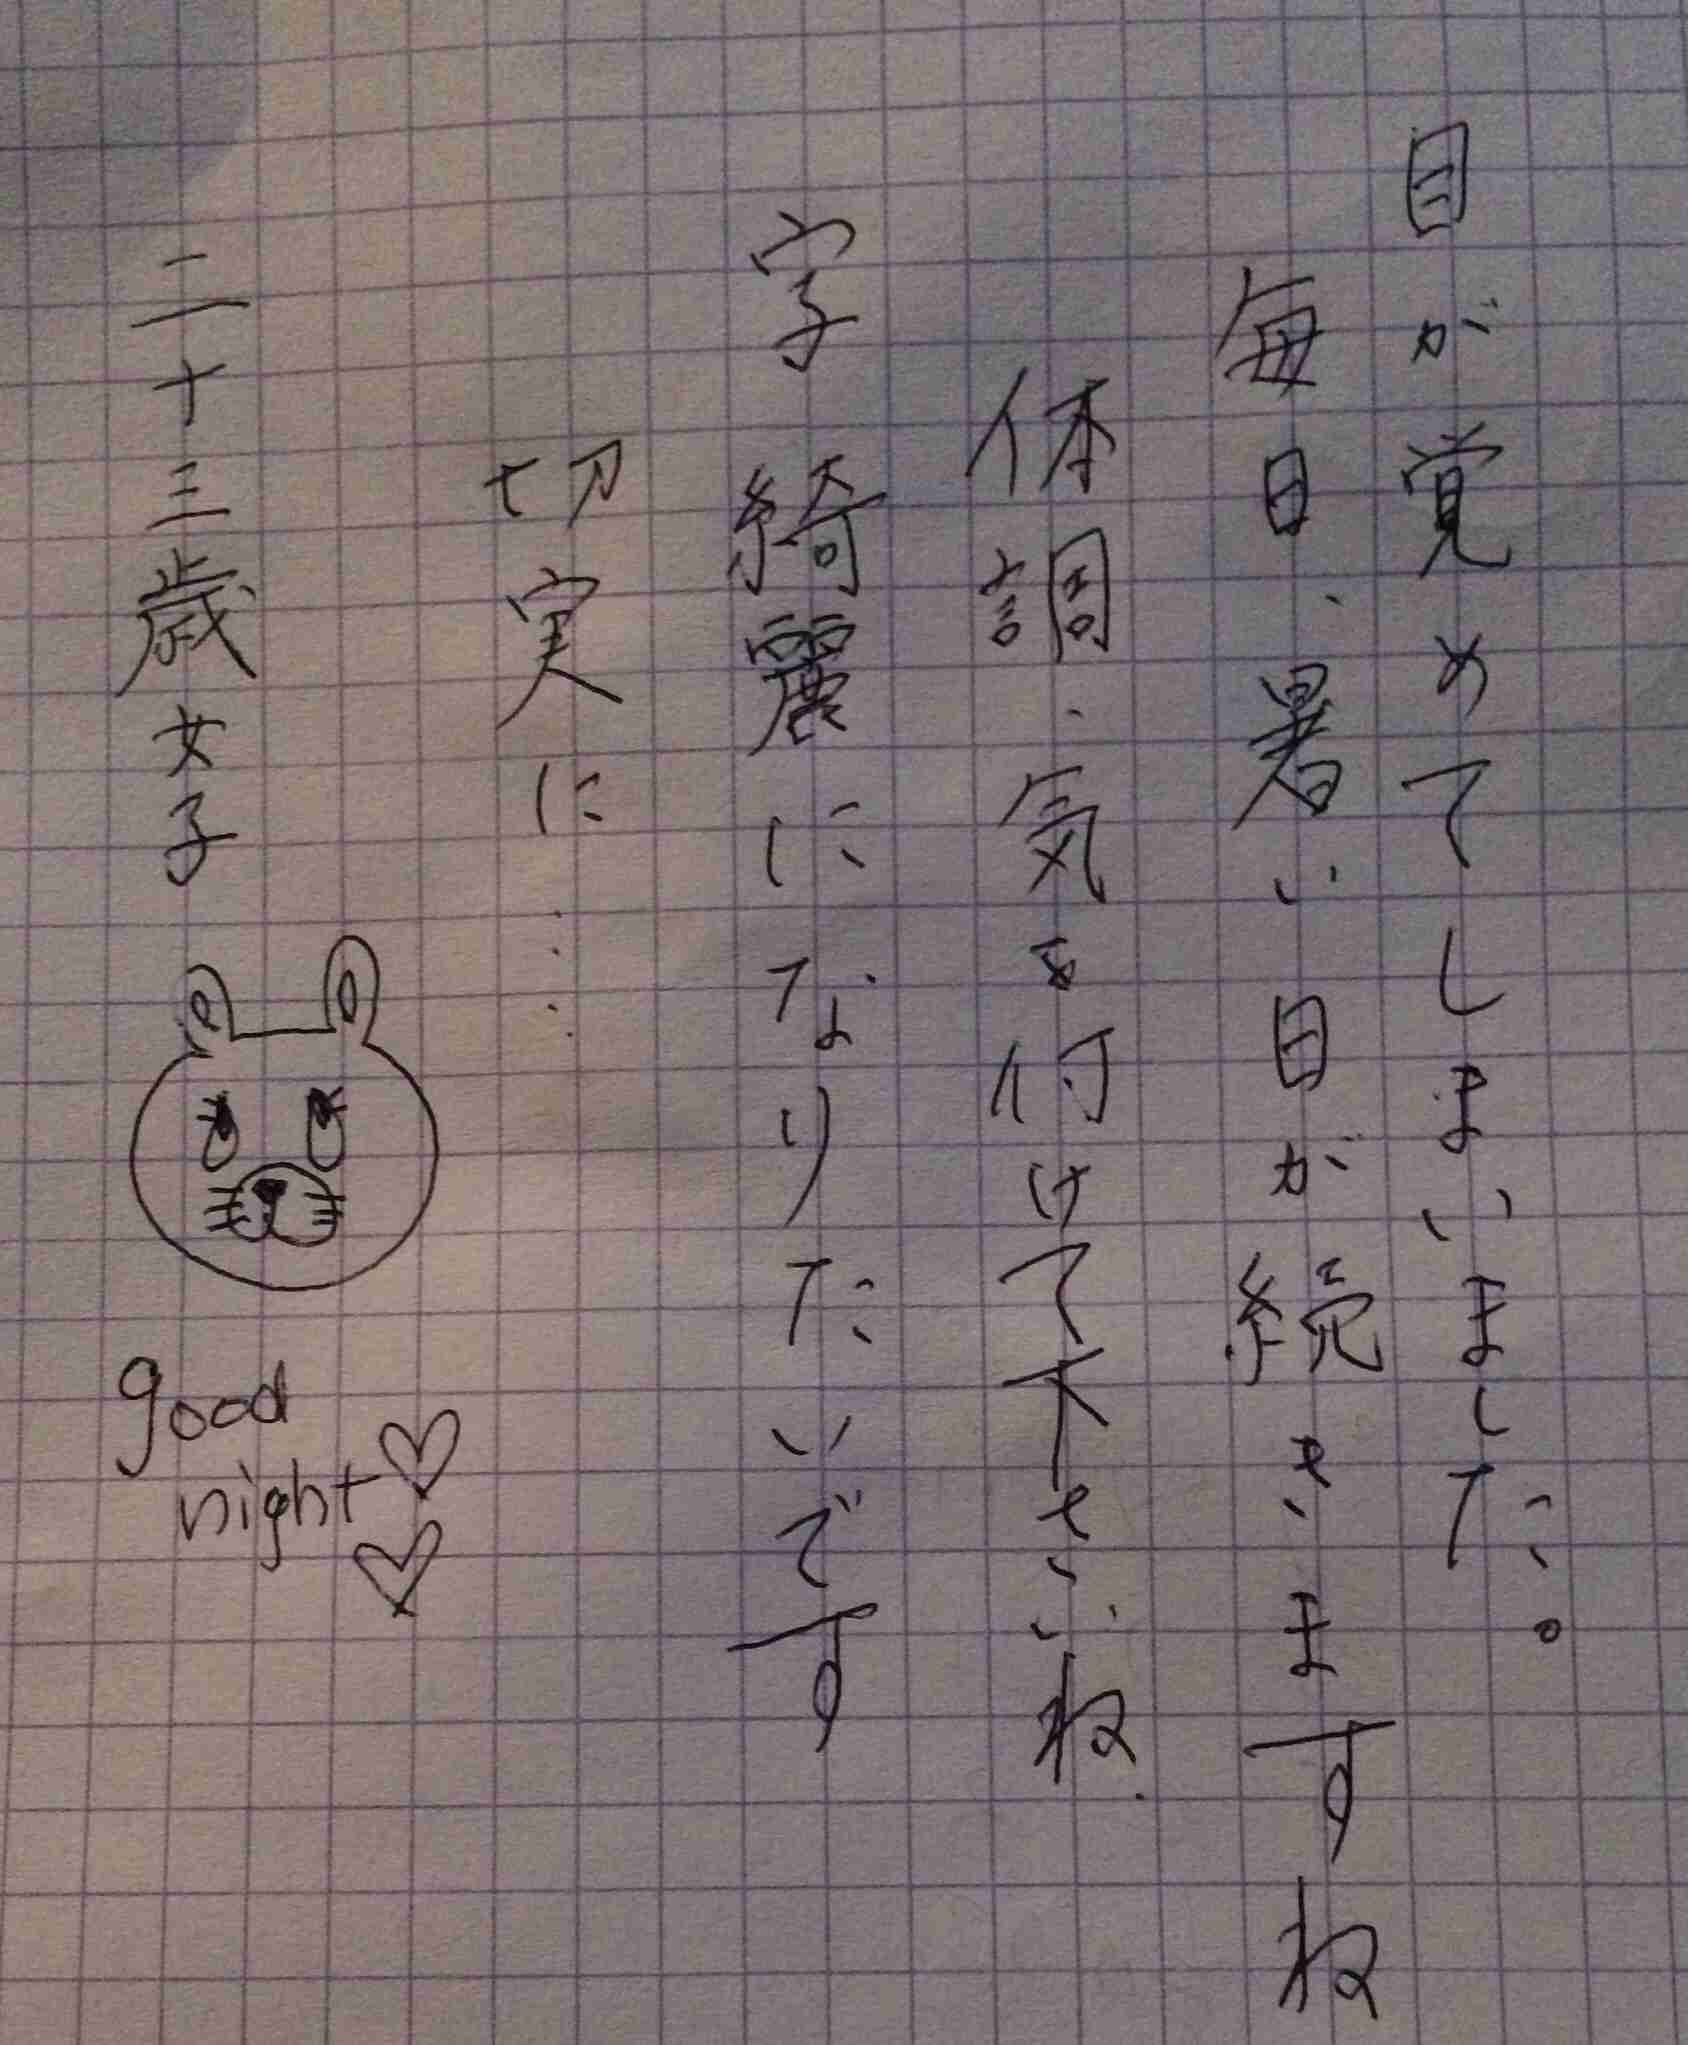 目が覚めてしまいました。
毎日、暑い目が続きますね
体調、気を付けて下さいね.
字綺麗になりたいです
切実に....
二十三歳女子
good
night